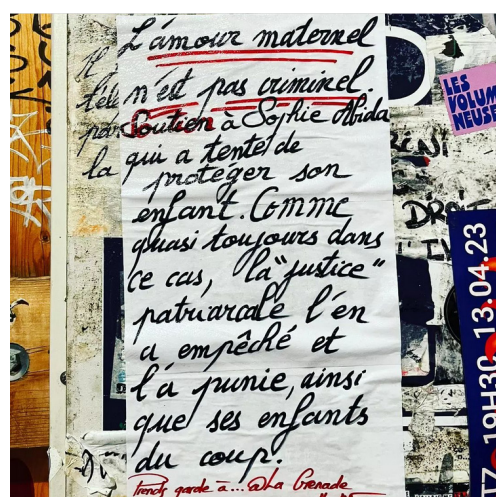 L'amour maternel
n'est pas criminel.
Soutien à Sophie Abida
qui a tenté de
protéger son
enfant. Comme
quasi toujours dans
ce cas, la "justice"
patriarcale l'en
a empêché et
l'a punie, ainsi
que ses enfants
du coup.
Prends garde à... @La Grenade
LES
VOLUM
NEUSE
la
DROIT
19H30 13.04.23